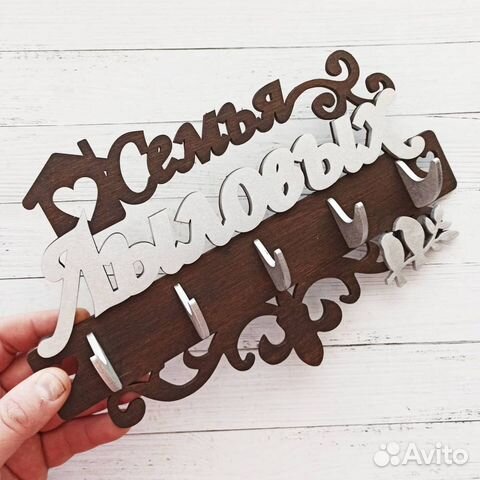 Семья
Лыловых
Avito